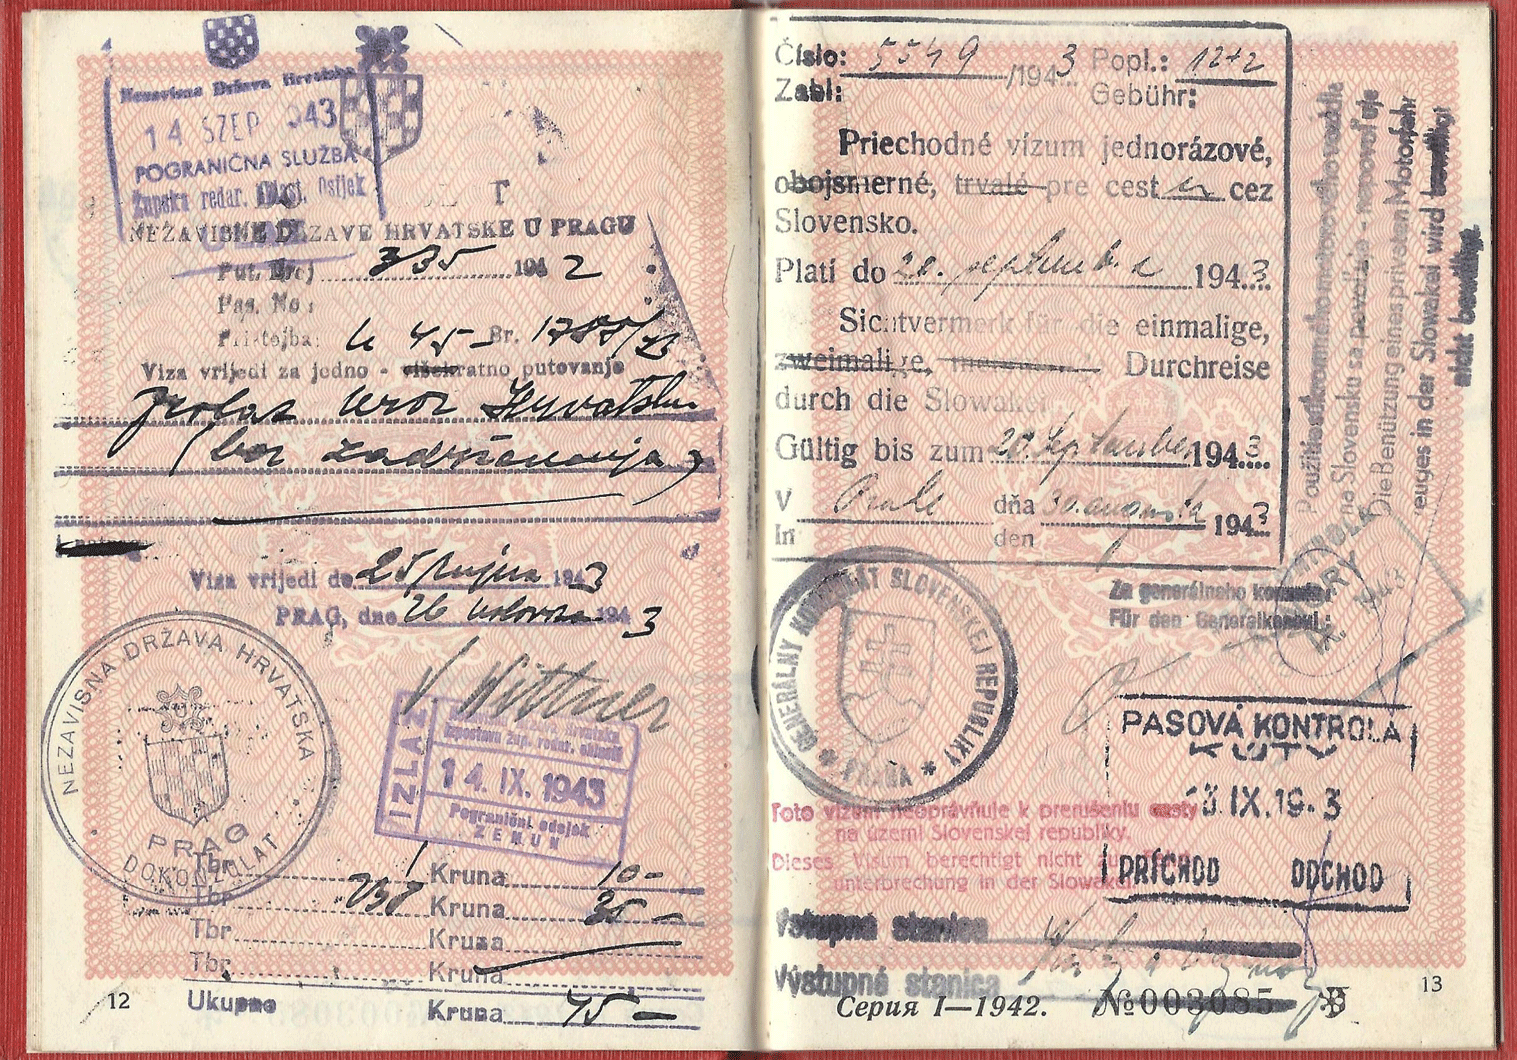 Nezavisna Država Hrvatska
14 SZEP 943
POGRANIČNA SLUŽBA
Župska redar. Osijek
NEZAVISNE DRŽAVE HRVATSKE U PRAGU
Put. Broj 335 1942
Pas. No:
Pristojba: K 45- Br. 1788/
Viza vrijedi za jedno - višekratno putovanje
prolaz kroz Hrvatsku
(bez zadržavanja)
Viza vrijedi do 25 rujna 1943
PRAG, dne 26 kolovoza 1943
NEZAVISNA DRŽAVA HRVATSKA
PRAG
DOKONZULAT
V Wittner
IZLAZ
14. IX. 1943
Pogranični odsjek
ZEMUN
Tbr 1 Kruna 10-
Tbr 238 Kruna 35-
Tbr Kruna
Tbr Kruna
Ukupno Kruna 45-
12
Číslo: 5549/1943 Popl.: 12+2
Zahl: Gebühr:
Priechodné vízum jednorázové,
obojsmerné, trvalé pre cestu cez
Slovensko.
Platí do 20. septembra 1943
Sichtvermerk für die einmalige,
zweimalige, Durchreise
durch die Slowakei
Gültig bis zum 20. September 1943
V Prahe dňa 30. augusta 1943
In den
Za generálneho konzula:
Für den Generalkonsul:
GENERÁLNY KONZULÁT SLOVENSKEJ REPUBLIKY
* PRAHA *
na Slovensku sa povoľuje - nepovoľuje
Die Benützung eines privaten Motorfahr
zeuges in der Slowakei wird bewilligt
nicht bewilligt.
PASOVÁ KONTROLA
KÚTY
IX.19-3
PRÍCHOD ODCHOD
Toto vízum neoprávňuje k prerušeniu cesty
na území Slovenskej republiky.
Dieses Visum berechtigt nicht zur
unterbrechung in der Slowakei.
Vstupná stanica
Výstupné stanica
Серия I—1942. №003085
13